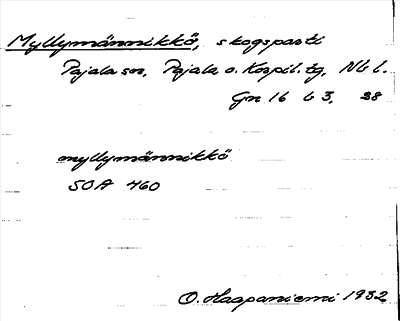 Myllymännikkö, skogsparti
Pajala sn, Pajala o. Korpil. tg, Nb l.
Gn 16 b 3, 28
myllymännikkö
SOA 460
O. Haapaniemi 1932